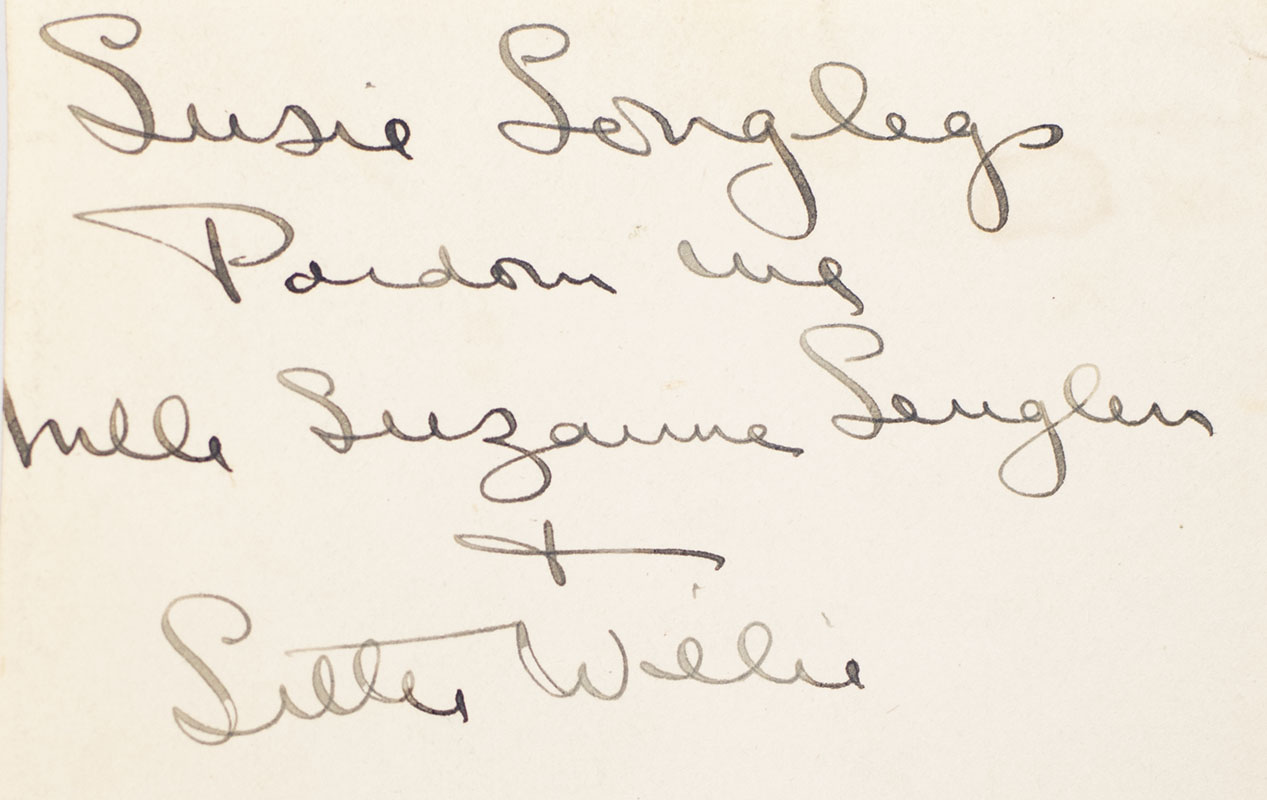 Susie Longlegs
Pardon me
Mlle Suzanne Lenglen
+
Little Willie